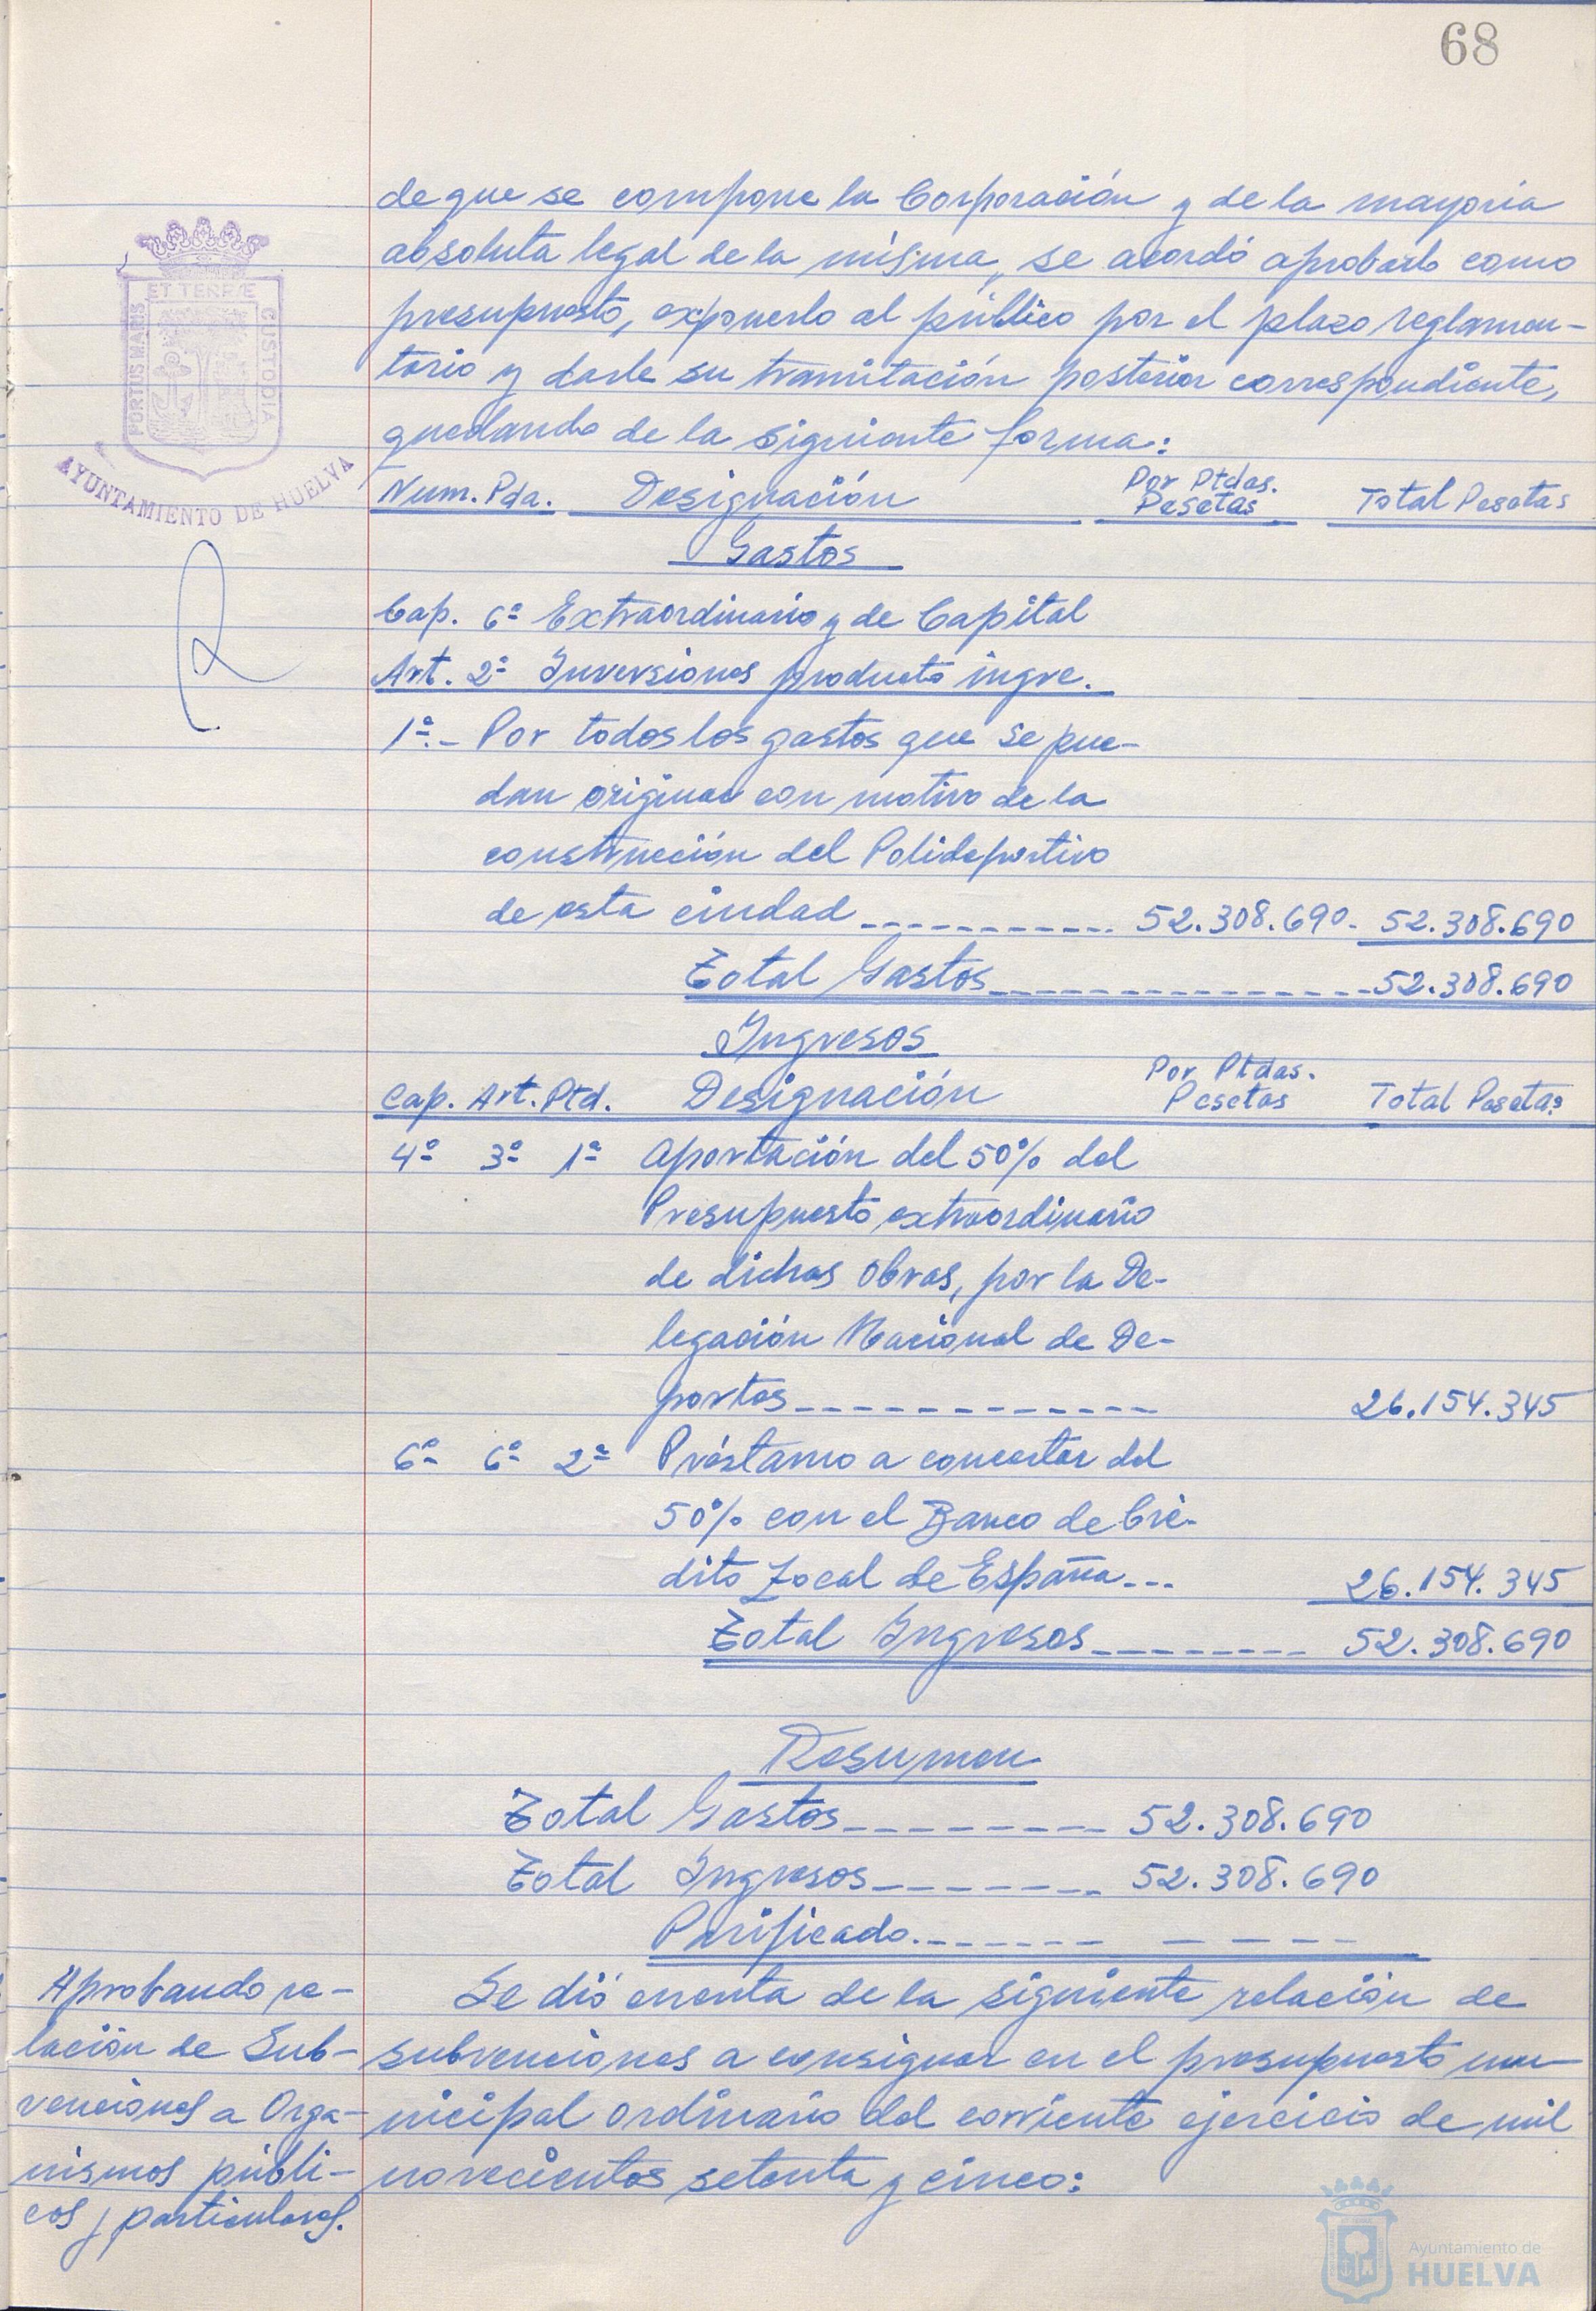 68
de que se compone la Corporación y de la mayoría
absoluta legal de la misma, se acordó aprobarlo como
presupuesto, exponerlo al público por el plazo reglamen-
tario y darle su tramitación posterior correspondiente,
quedando de la siguiente forma:
PORTUS MARIS ET TERRÆ CUSTODIA
AYUNTAMIENTO DE HUELVA
Num. Pda. Designación Por Ptdas. Pesetas Total Pesetas
Gastos
Cap. 6º Extraordinario y de Capital
Art. 2º Inversiones producto ingre.
1ª.- Por todos los gastos que se pue-
dan originar con motivo de la
construcción del Polideportivo
de esta ciudad 52.308.690.- 52.308.690
Total Gastos 52.308.690
Ingresos
Cap. Art. Ptd. Designación Por Ptdas. Pesetas Total Pesetas
4º 3º 1ª Aportación del 50% del
Presupuesto extraordinario
de dichas obras, por la De-
legación Nacional de De-
portes 26.154.345
6º 6º 2ª Préstamo a concertar del
50% con el Banco de Cré-
dito Local de España 26.154.345
Total Ingresos 52.308.690
Resumen
Total Gastos 52.308.690
Total Ingresos 52.308.690
Parificado
Aprobando re-
lación de Sub-
venciones a Orga-
nismos públi-
cos y particulares.
Se dió cuenta de la siguiente relación de
subvenciones a consignar en el presupuesto mu-
nicipal ordinario del corriente ejercicio de mil
novecientos setenta y cinco:
Ayuntamiento de
HUELVA